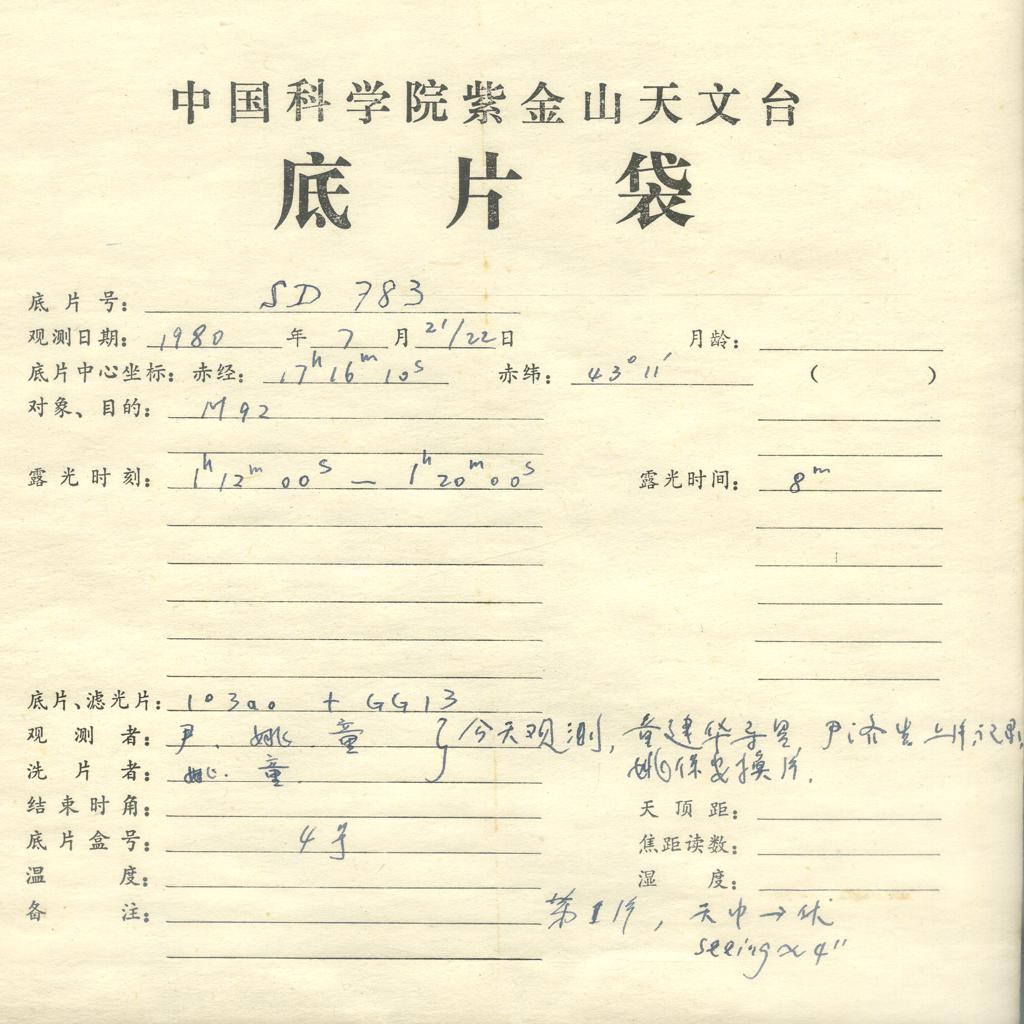 中国科学院紫金山天文台
底片袋
底片号: SD 783
观测日期: 1980 年 7 月 21/22 日 月龄:
底片中心坐标: 赤经: 17h 16m 10s 赤纬: 43° 11′ ( )
对象、目的: M92
露光时刻: 1h 12m 00s — 1h 20m 00s 露光时间: 8m
底片、滤光片: 103aO + GG13
观测者: 尹. 姚 童 } 今天观测, 童建华导星, 尹济生上片,记录,
洗片者: 姚. 童 姚保安换片.
结束时角: 天顶距:
底片盒号: 4号 焦距读数:
温度: 湿度:
备注: 第1片, 天中→优
seeing≈4"